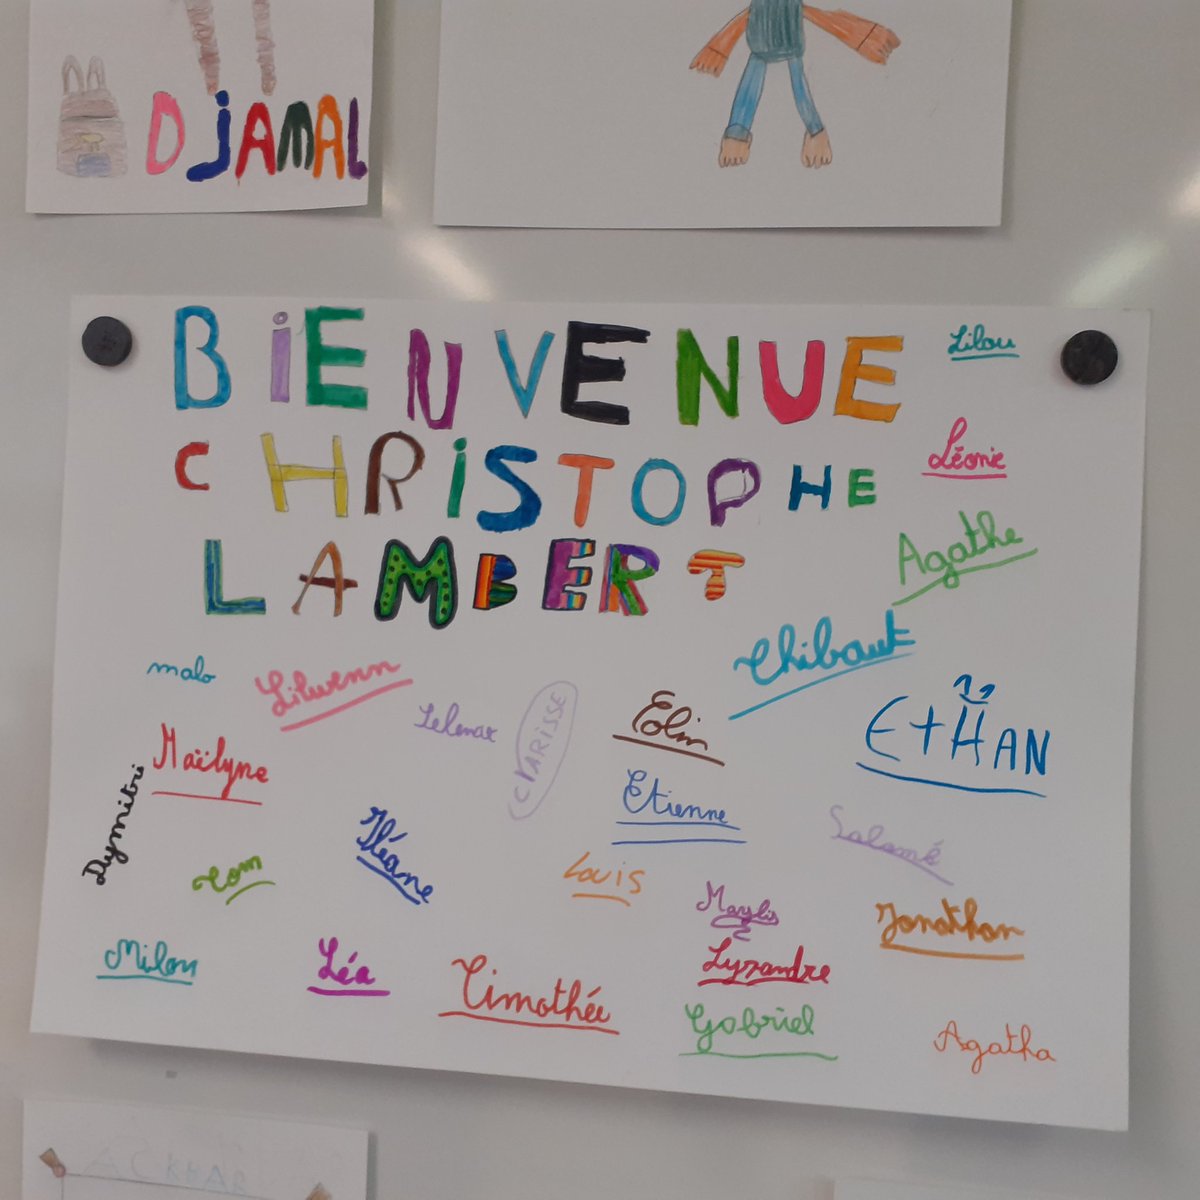 DjAMAL
BiENVENUE
Lilou
CHRiSTOPHE
Léonie
LAMBERT
Agathe
Thibaut
malo
Lilwenn
CLARISSE
Eolin
ETHAN
Maïlyne
Dymitri
Etienne
Salomé
Iléane
Tom
Louis
Maylis
Jonathan
Milou
Léa
Timothée
Lysandre
Gabriel
Agatha